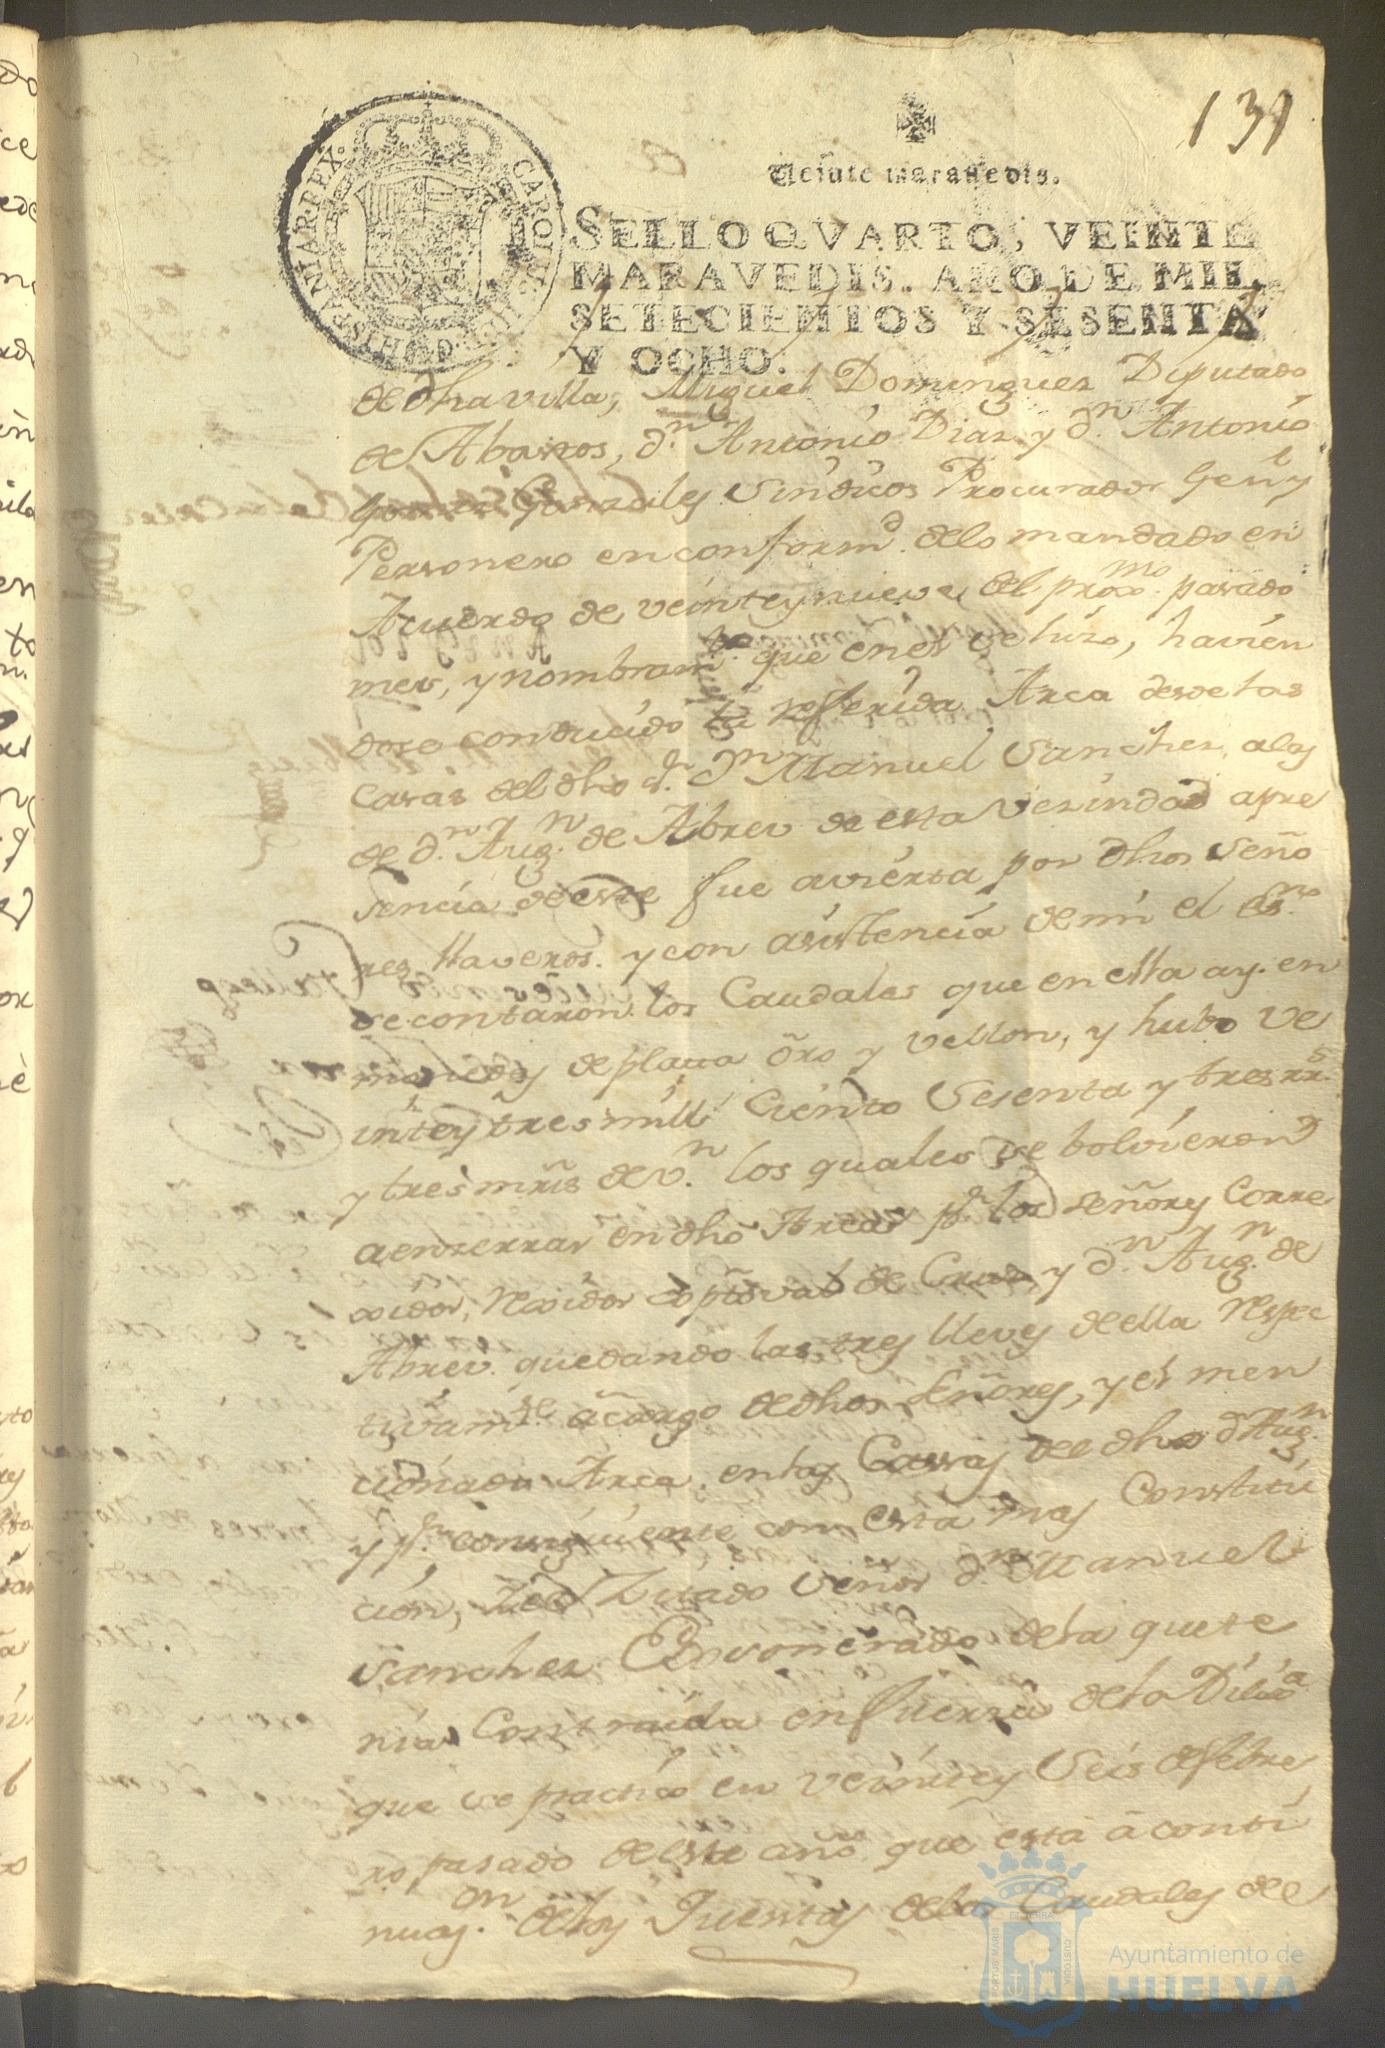 131
CAROLUS III D G HISPANIAR REX
Veinte maravedis.
SELLO QVARTO, VEINTE
MARAVEDIS, AÑO DE MIL
SETECIENTOS Y SESENTA
Y OCHO.
de dha villa, Miguel Dominguez Diputado
de Abastos, dn. Antonio Diaz y dn. Antonio
Gonzales Sindicos Procurador Genl y
Personero en conformd. delo mandado en
Acuerdo de veinte y nueve del proxmo. pasado
mes, y nombramto. que en el se hizo, havien
dose conducido la referida Arca desde las
Casas del dho sr. dn Manuel Sanchez, a las
de dn. Augn. de Abreu de esta Vezindad apre
sencia de este fue avierta por dhos Seño
res llaveros. y con asistencia de mi el Esno.
se contaron los Caudales que en ella ay. en
monedas de plata oro y vellon, y hubo ve
inte y tres mill Ciento Sesenta y tres rrs.
y tres mrs de vn. los quales se bolvieron
a enzerrar en dho Arca pr. los Señores Corre
xidor, Rexidor Xptoval de Cruz, y dn. Augn. de
Abreu quedando las tres lleves de ella respec
tivamte. a cargo de dhos Señores, y el men
cionada Arca en las Casas del dho dn Augn.
y pr. consiguiente con esta mas Constitu
cion, el Zitado Señor dn Manuel
Sanchez Exsonerado de la que te
nia Contraida en fuerza de la Diliza
que se practico en veinte y Seis de febre
ro pasado de este año que esta a conti
nuazn. de las Quentas de los Caudales de
EL TERRA
PORTUS MARIS
CUSTODIA
Ayuntamiento de
HUELVA